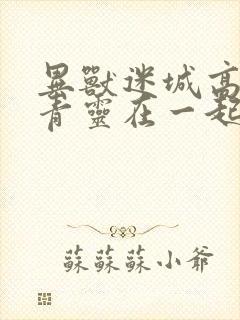 異獸迷城高
青靈在一起
蘇蘇蘇小爺